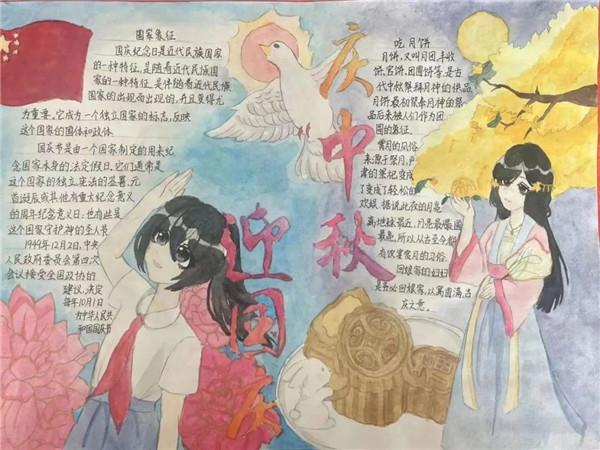 国家象征
国庆纪念日是近代民族国家
的一种特征,是随着近代民族国
家的出现而出现的,并且变得尤
为重要。它成为一个独立国家的标志,反映
这个国家的国体和政体
国庆节是由一个国家制定的用来纪
念国家本身的法定假日,它们通常是
这个国家的独立、宪法的签署、元
首诞辰或其他有重大纪念意义
的周年纪念日,也有些是
这个国家守护神的圣人节
1949年12月2日,中央
人民政府委员会第四次
会议接受全国政协的
建议,决定
每年10月1日
为中华人民共
和国国庆节
迎国庆
庆中秋
吃月饼
月饼,又叫月团、丰收
饼、宫饼、团圆饼等,是古
代中秋祭拜月神的供品
月饼最初是祭月神的祭
品后来被人们作为团
圆的象征。
赏月的风俗
来源于祭月,严
肃的祭祀变成
了变成了轻松的
欢娱 据说此夜的月亮
离地球最近,月亮最圆
最亮,所以从古至今都
有饮宴赏月的习俗。
回娘家的妇妇
是务必回娘家,以寓圆满、吉
庆之意。